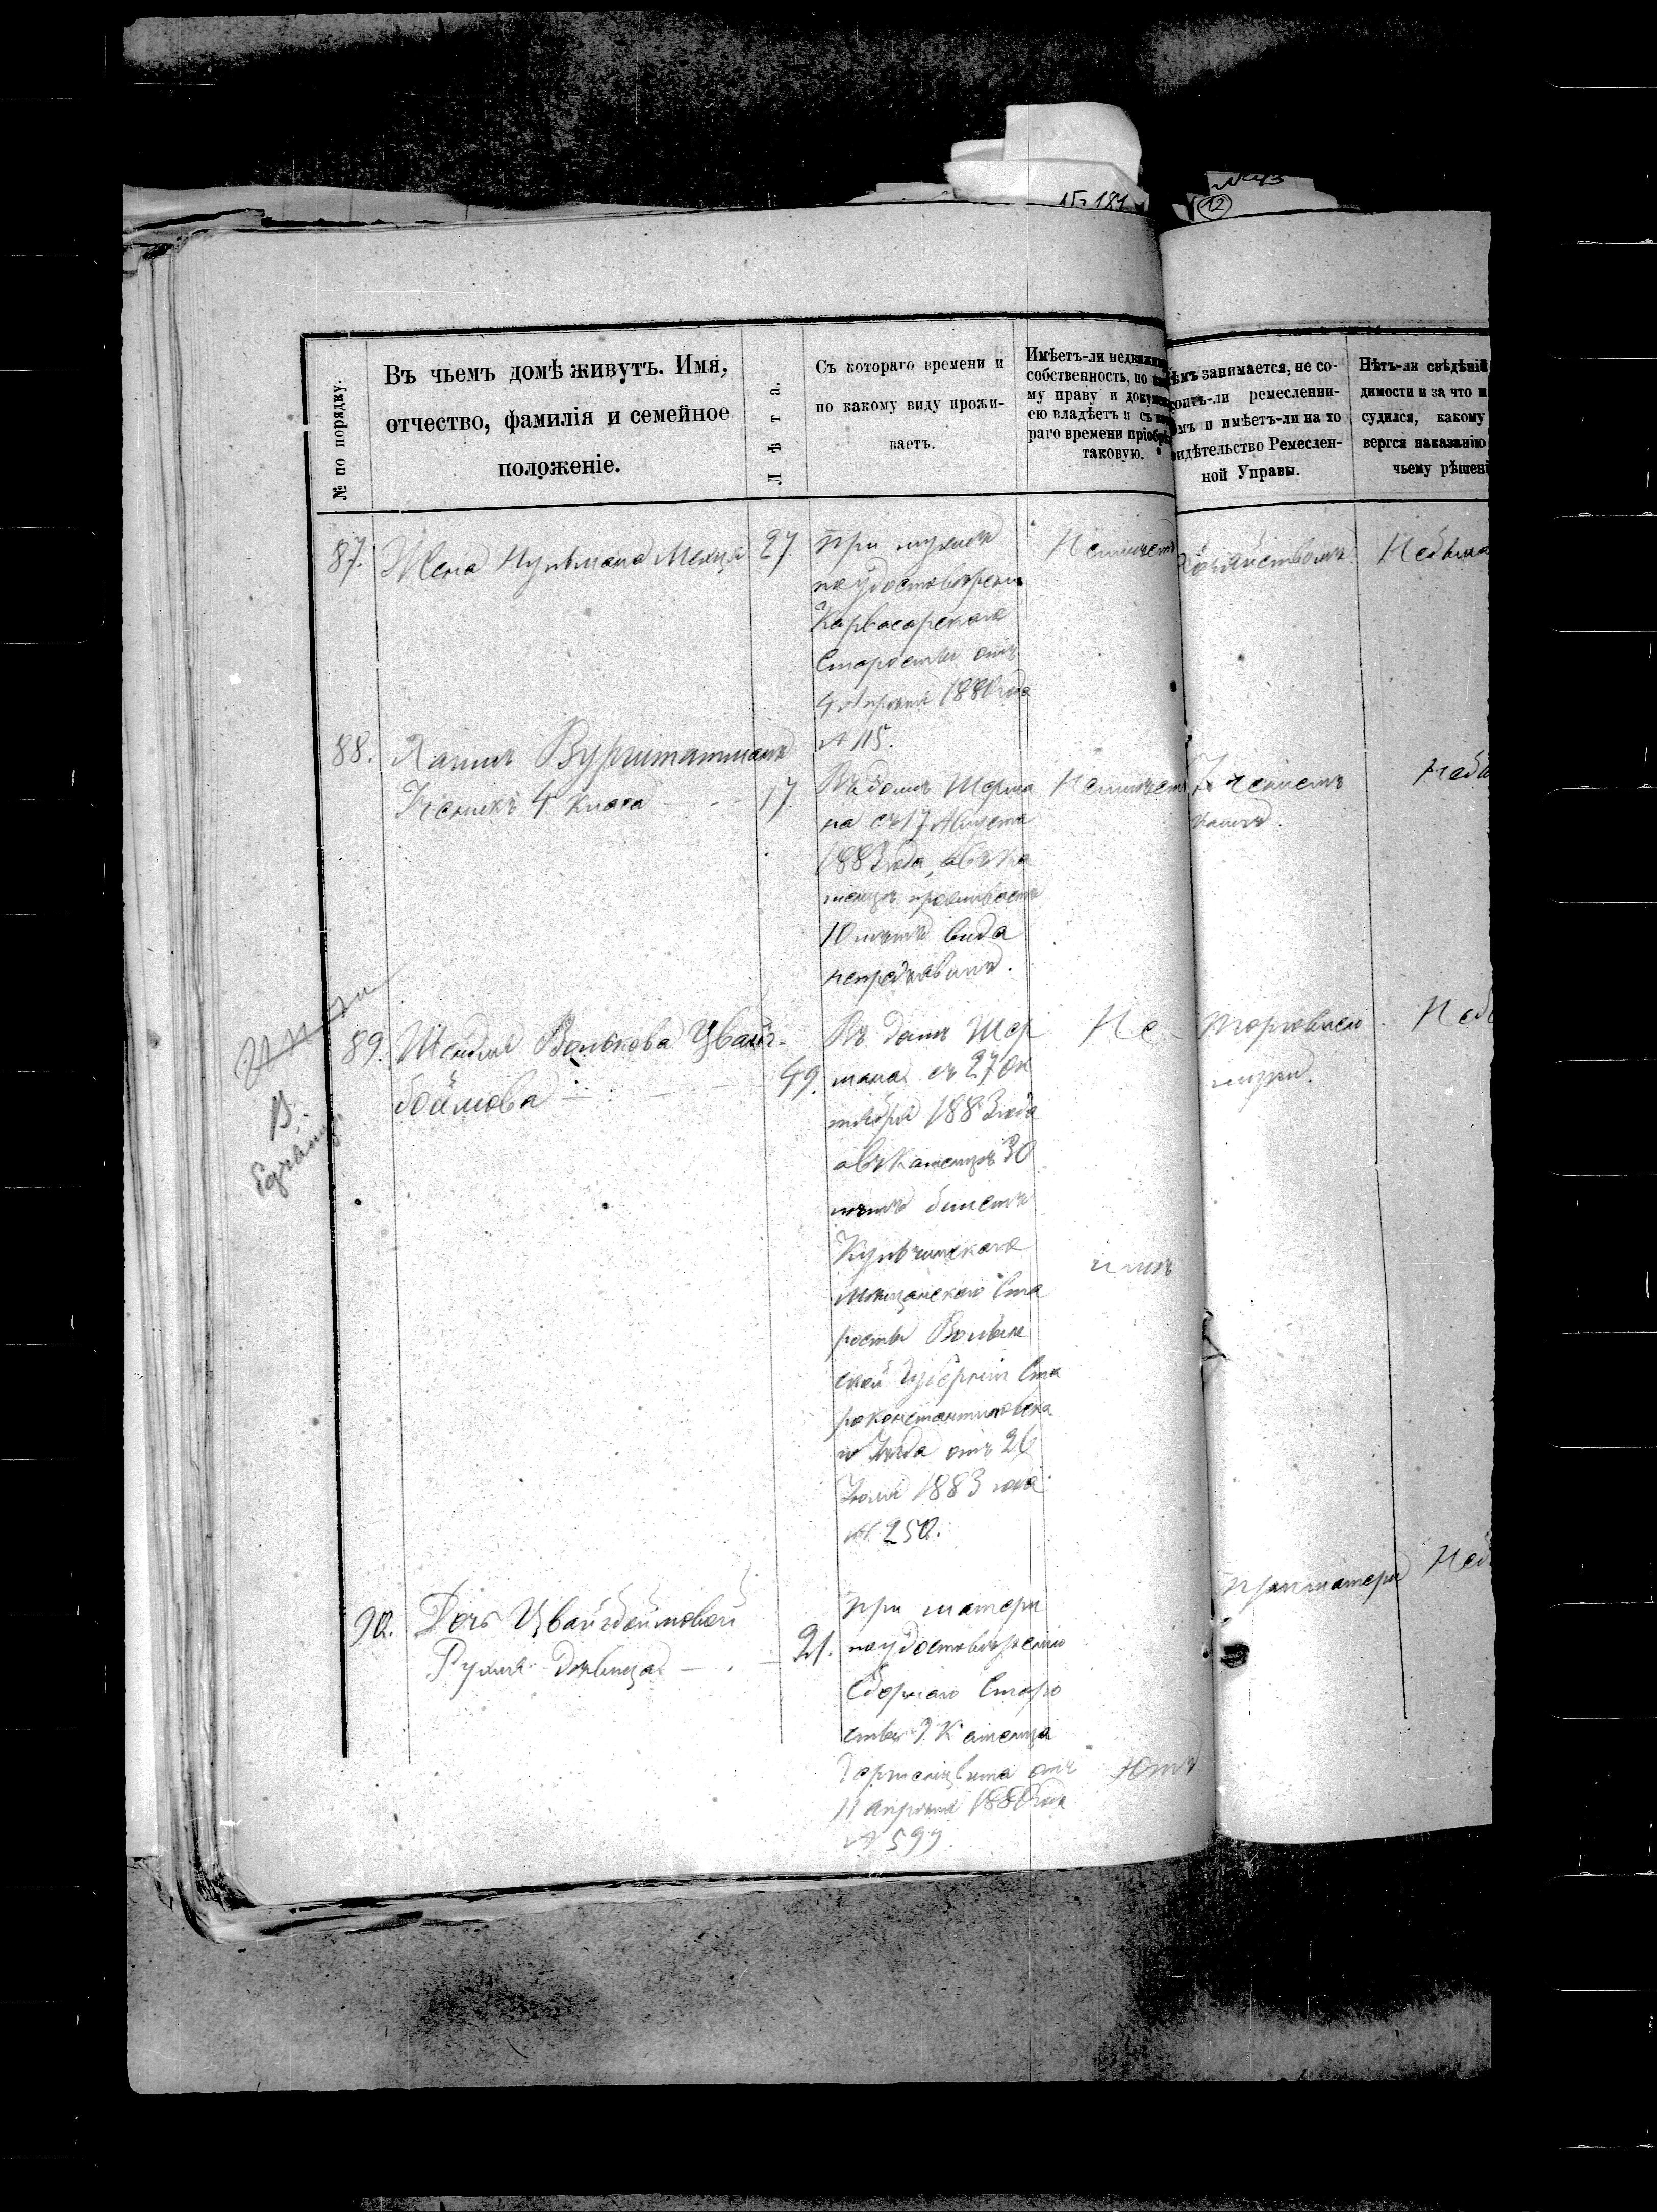 № 181
№ 43
12
№ по порядку.
Въ чьемъ домѣ живутъ. Имя,
отчество, фамилія и семейное
положеніе.
Лѣта.
Съ котораго времени и
по какому виду прожи-
ваетъ.
Имѣетъ-ли недвижим
собственность, по
му праву и докумен
ею владѣетъ и съ
раго времени пріобрѣ
таковую.
ѣмъ занимается, не со-
оитъ-ли ремесленни-
омъ и имѣетъ-ли на то
идѣтельство Ремеслен-
ной Управы.
Нѣтъ-ли свѣдѣній
димости и за что и
судился, какому
вергся наказанію
чьему рѣшені
87. Жена 27.
при мужѣ
по удостоверен
Карвасарскаго
Старосты отъ
4 Апрѣля 1880 года
№ 115.
Неимѣетъ
Хозяйствомъ
Небыла
88. Хаимъ Вурштатманъ
Ученикъ 4 класа 17.
Въ домѣ Шерма
на съ 17 Августа
1883 года, а въ Ка
менцѣ проживаетъ
10 лѣтъ вида
непредъявилъ.
Неимѣетъ
89. Шейдля Волькова Цвайг-
боймова 49.
Въ домѣ Шер
мана съ 27 Ок
тября 1883 года
а въ Каменцѣ 30
лѣтъ билетъ
Кульчинскаго
Мѣщанскаго Ста
росты Волын
ской Губерніи Ста
роконстантиновска
го Уѣзда отъ 26
Іюля 1883 года
№ 250.
Не
Торговлею
В.
90. Дочь Цвайгбоймовой
Рухля девица 21.
при матери
по удостоверенію
Сборнаго Старо
сты Г. Каменца
отъ
11 апрѣля 1880 года
№ 599.
при матери